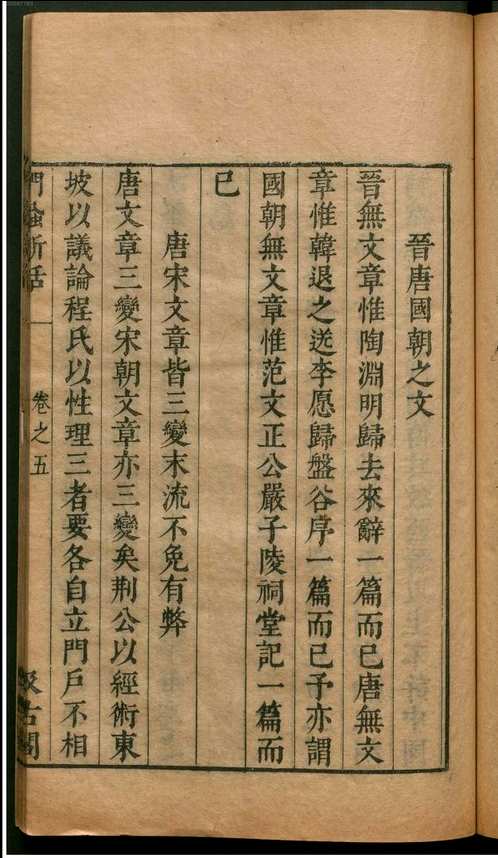 晉唐國朝之文
晉無文章惟陶淵明歸去來辭一篇而已唐無文
章惟韓退之送李愿歸盤谷序一篇而已予亦謂
國朝無文章惟范文正公嚴子陵祠堂記一篇而
已
唐宋文章皆三變末流不免有弊
唐文章三變宋朝文章亦三變矣荆公以經術東
坡以議論程氏以性理三者要各自立門戶不相
門蝨新話 卷之五 汲古閣